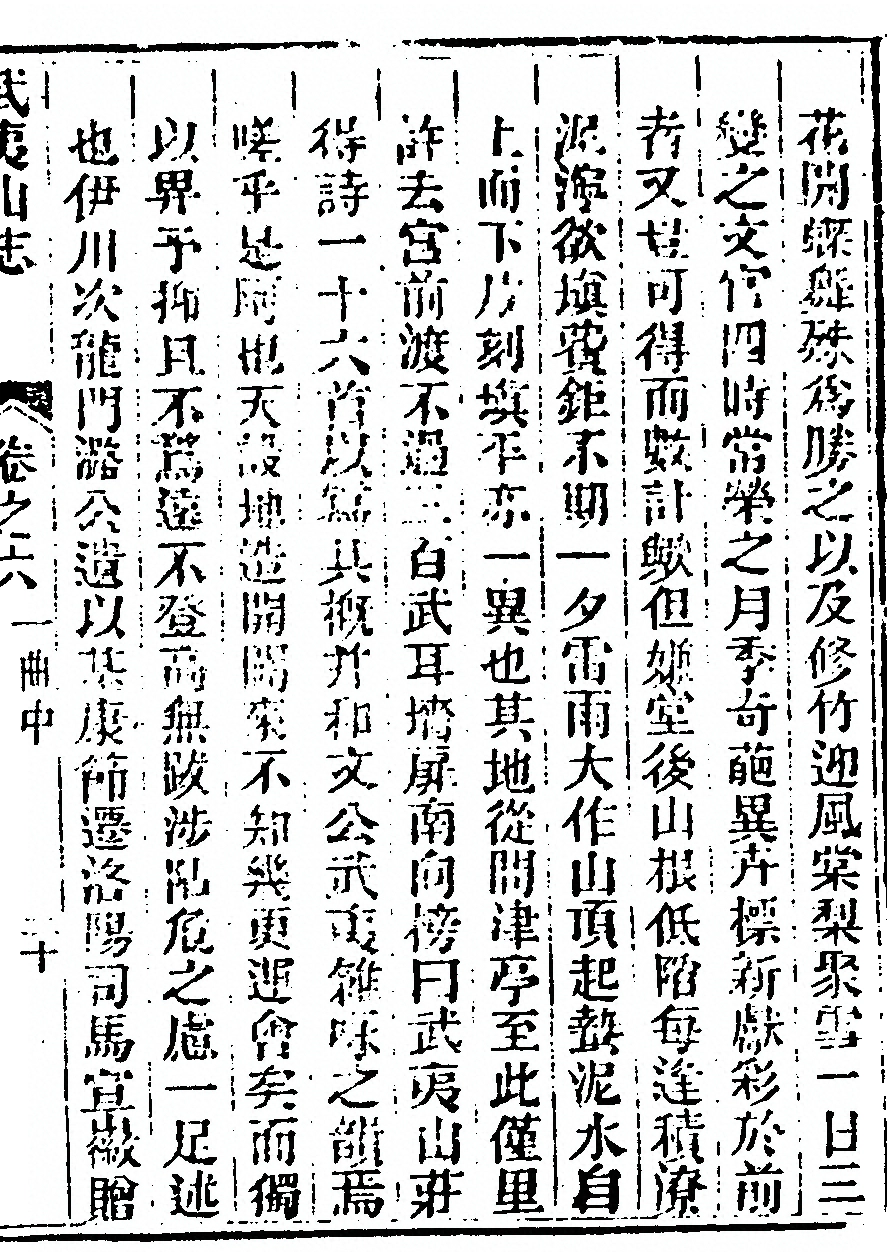 花開蝶舞殊爲勝之以及修竹迎風棠梨聚雪一日三
變之文官四時常榮之月季奇葩異卉標新獻彩於前
者又豈可得而數計歟但嫌堂後山根低陷每逢積潦
泥濘欲填費鉅不期一夕雷雨大作山頂起蟄泥水自
上而下片刻填平亦一異也其地從問津亭至此僅里
許去宮前渡不過三百武耳墻扉南向榜曰武夷山莊
得詩一十六首以寫其概并和文公武夷雜咏之韻焉
嗟乎是剛也天設地造開闢來不知幾更運會矣而獨
以畀予抑且不爲遠不登高無跋涉阽危之慮一足述
也伊川次龍門潞公遺以基康節遷洛陽司馬宣徽贈
武夷山志 卷之六 一曲中 二十